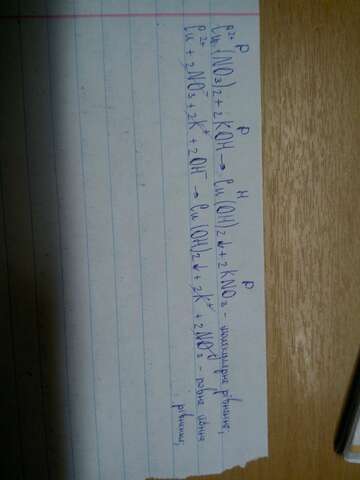 P P H P
Cu²⁺(NO₃)₂ + 2KOH → Cu(OH)₂↓ + 2KNO₃ - молекулярне рівняння;
P 2+
Cu + 2NO₃⁻ + 2K⁺ + 2OH⁻ → Cu(OH)₂↓ + 2K⁺ + 2NO₃⁻ - повне йонне
рівняння;